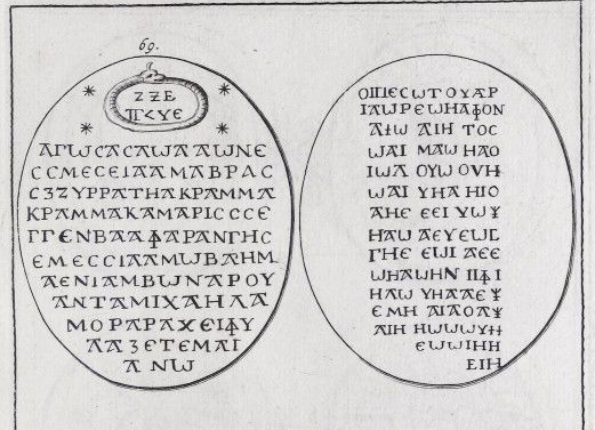 69.
ΖΖΕ
ΠΚΥΕ
ΑΓΩϹΑϹΑΩΑΑΩΝΕ
ϹϹΜΕϹΕΙΑΑΜΑΒΡΑϹ
Ϲ3ΖΥΡΡΑΤΗΑΚΡΑΜΜΑ
ΚΡΑΜΜΑΚΑΜΑΡΙϹϹϹΕ
ΓΓΕΝΒΑΑΦΑΡΑΝΓΗϹ
ΕΜΕϹϹΙΑΑΜΩΒΑΗΜ
ΑΕΝΙΑΜΒΩΝΑΡΟΥ
ΑΝΤΑΜΙΧΑΗΛΑ
ΜΟΡΑΡΑΧΕΙΦΥ
ΑΑ3ΕΤΕΜΑΙ
ΑΝΩ
ΟΙΠΕϹΩΤΟΥΑΡ
ΙΑΩΡΕΩΗΑΦΟΝ
ΑΙΩ ΑΙΗ ΤΟϹ
ΩΑΙ ΜΑΩ ΗΑΟ
ΙΩΑ ΟΥΩ ΟΥΗ
ΩΑΙ ΥΗΑ ΗΙΟ
ΑΗΕ ΕΕΙ ΥΩ
ΗΑΩ ΑΕΥΕΩ
ΓΗΕ ΕΩΙ ΑΕΕ
ΩΗΑΩΗΝ ΙΙΦΙ
ΗΑΩ ΥΗΑΑΕ
ΕΜΗ ΑΙΑΟΑ
ΑΙΗ ΗΩΩΩΥΗ
ΕΩΩΙΗΗ
ΕΙΗ